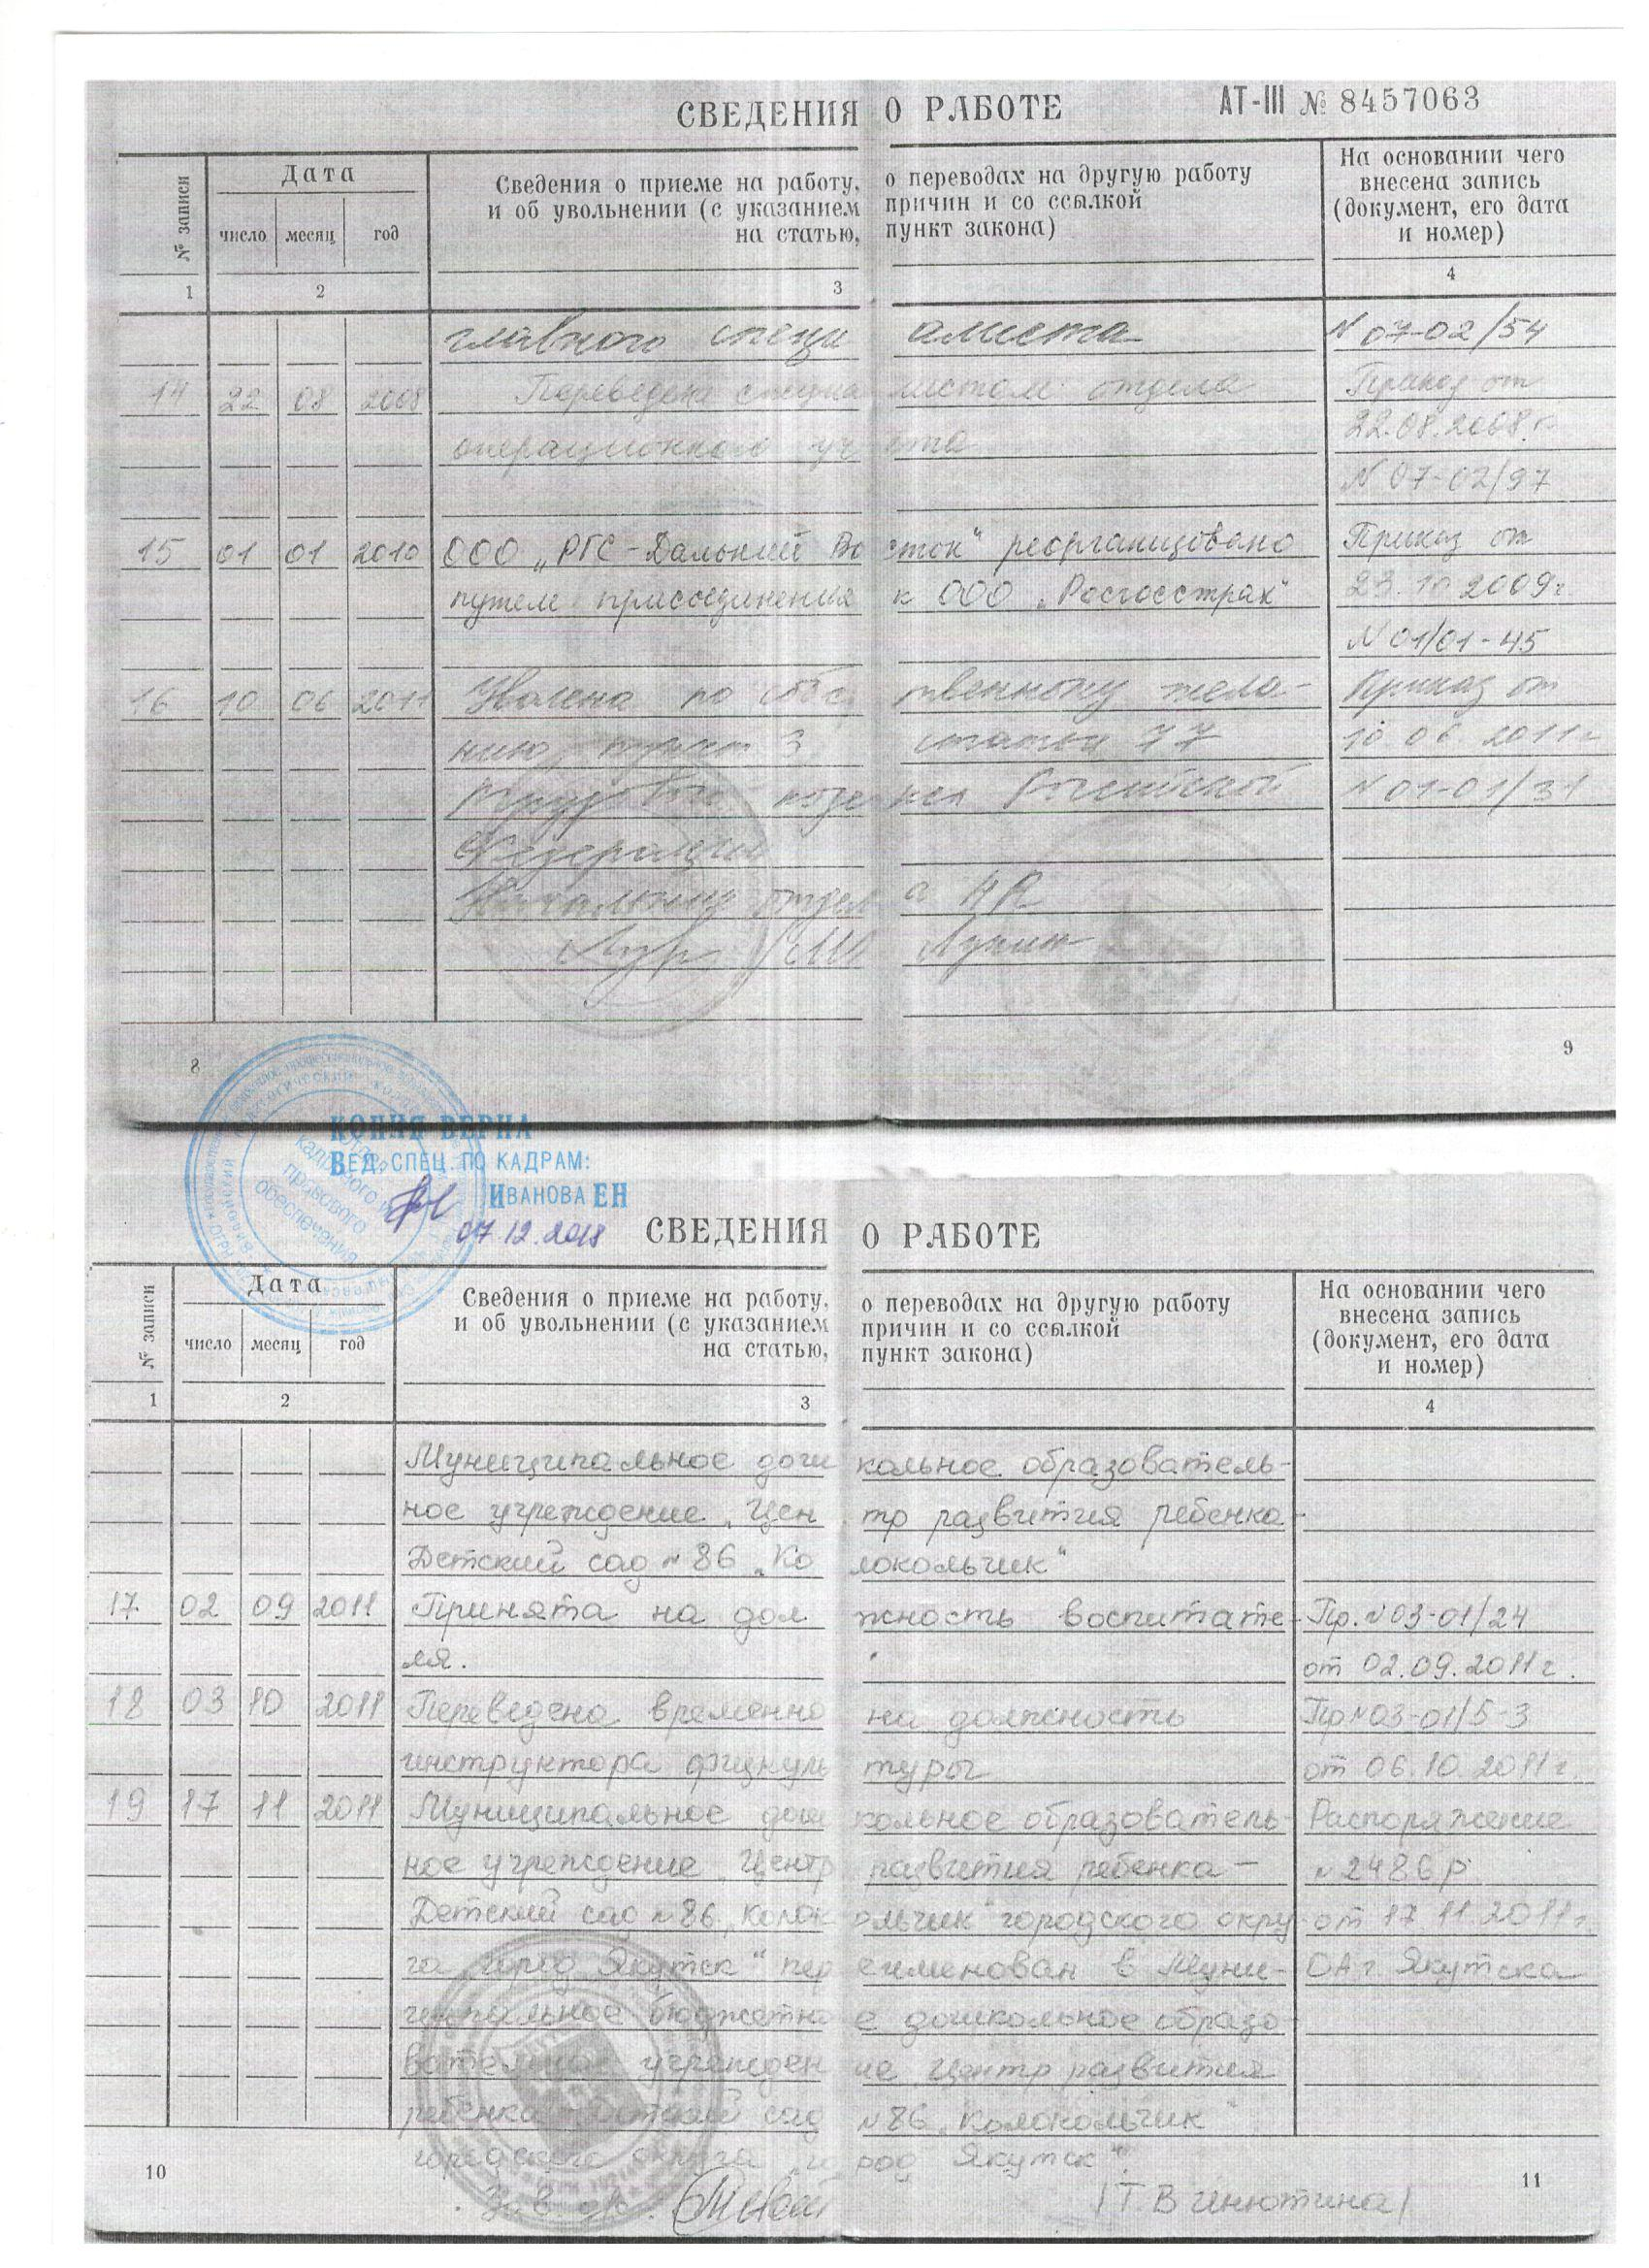 СВЕДЕНИЯ О РАБОТЕ
АТ-III № 8457063
№ записи
Дата
число месяц год
Сведения о приеме на работу, о переводах на другую работу
и об увольнении (с указанием причин и со ссылкой
на статью, пункт закона)
На основании чего
внесена запись
(документ, его дата
и номер)
1 2 3 4
главного специалиста N 07-02/54
14 22 08 2008 Переведена специалистом отдела Приказ от
операционного учета 22.08.2008 г.
N 07-02/97
15 01 01 2010 ООО „РГС-Дальний Восток" реорганизовано Приказ от
путем присоединения к ООО „Росгосстрах" 23.10 2009г
N 01/01-45
16 10 06 2011 Уволена по собственному жела- Приказ от
нию, пункт 3 статьи 77 10.06 2011г
Трудового кодекса Российской N 01-01/31
Федерации
Начальник отдела HR
8 9
КОПИЯ ВЕРНА
ВЕД. СПЕЦ. ПО КАДРАМ:
ИВАНОВА ЕН
07.12.2018
Отдел
кадрового и
правового
обеспечения
СВЕДЕНИЯ О РАБОТЕ
№ записи
Дата
число месяц год
Сведения о приеме на работу, о переводах на другую работу
и об увольнении (с указанием причин и со ссылкой
на статью, пункт закона)
На основании чего
внесена запись
(документ, его дата
и номер)
1 2 3 4
Муниципальное дошкольное образователь-
ное учреждение „Центр развития ребенка-
Детский сад №86 „Колокольчик"
17 02 09 2011 Принята на должность воспитате- Пр. №03-01/24
ля. от 02.09.2011г.
18 03 10 2011 Переведена временно на должность Пр №03-01/5-3
инструктора физкультуры от 06.10.2011г.
19 17 11 2011 Муниципальное дошкольное образователь- Распоряжение
ное учреждение „Центр развития ребенка- №2486р
Детский сад №86 „Колокольчик" городского окру- от 17.11.2011г.
га „город Якутск" переименован в Муни- ОА г. Якутска
ципальное бюджетное дошкольное образо-
вательное учреждение Центр развития
ребенка - Детский сад №86 „Колокольчик"
городского округа „город Якутск".
10 11
/Т В Инютина/